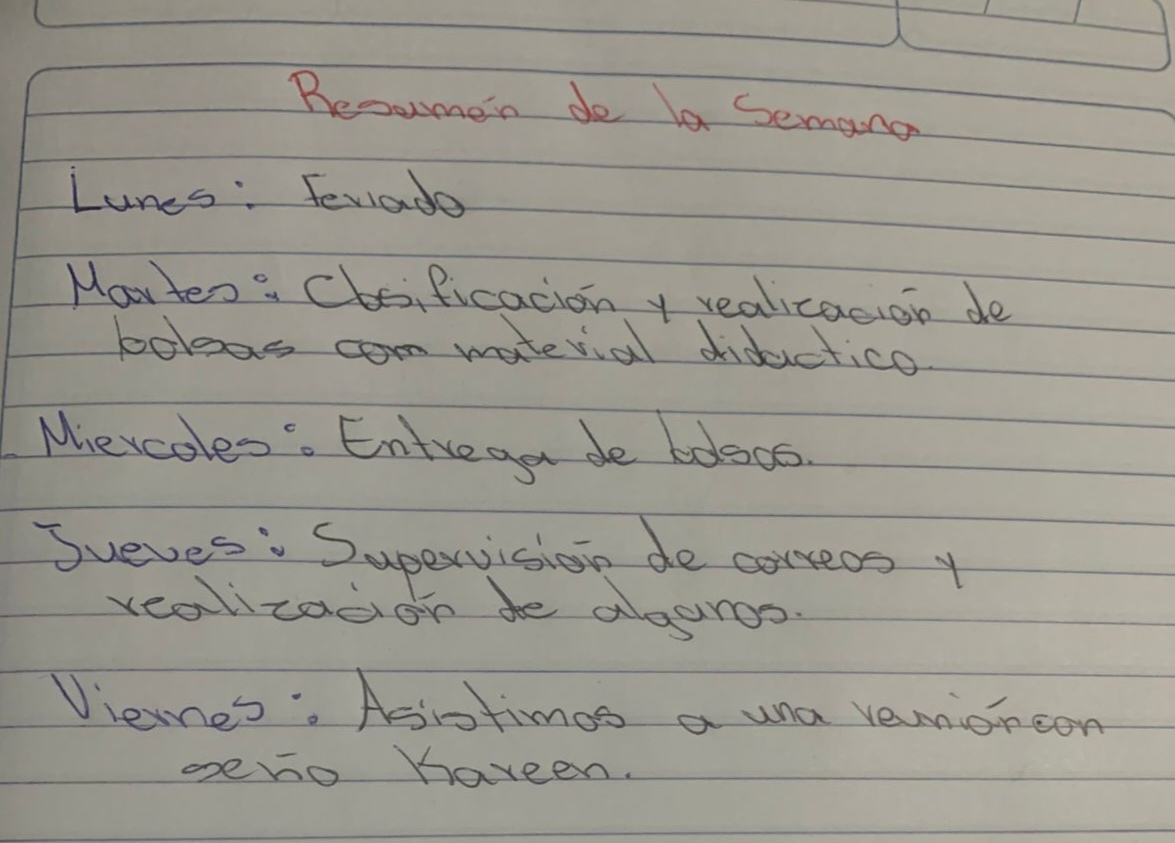 Resumén de la Semana
Lunes: Feriado
Martes: Clasificación y realización de
bolsas com material didactico.
Miercoles: Entrega de bolsas.
Jueves: Supervisión de correos y
realización de algunos.
Viernes: Asistimos a una reunión con
seño Kareen.